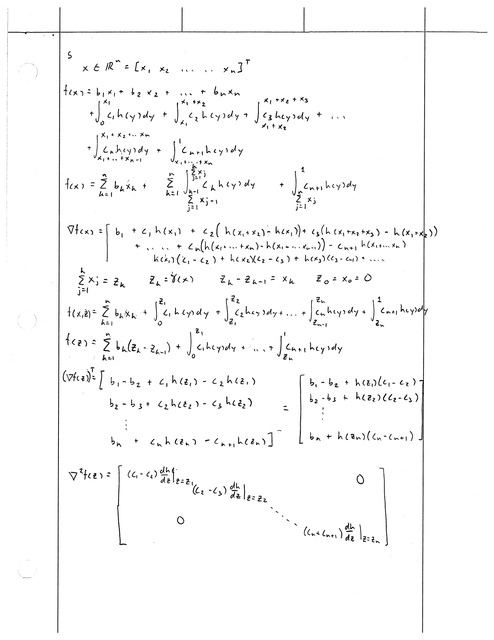 5
x ∈ ℝⁿ = [x₁ x₂ ... .. xₙ]ᵀ
f(x) = b₁x₁ + b₂x₂ + ... + bₙxₙ
+ ∫₀^{x₁} c₁h(y)dy + ∫_{x₁}^{x₁+x₂} c₂h(y)dy + ∫_{x₁+x₂}^{x₁+x₂+x₃} c₃h(y)dy + ...
+ ∫_{x₁+...+xₙ₋₁}^{x₁+x₂+...xₙ} cₙh(y)dy + ∫_{x₁+...+xₙ}^{1} cₙ₊₁h(y)dy
f(x) = Σ_{k=1}^{n} bₖxₖ + Σ_{k=1}^{n} ∫_{Σ_{j=1}^{k-1} xⱼ₋₁}^{Σ_{j=1}^{k} xⱼ} cₖh(y)dy + ∫_{Σ_{j=1}^{n} xⱼ}^{1} cₙ₊₁h(y)dy
∇f(x) = [ b₁ + c₁h(x₁) + c₂(h(x₁+x₂) - h(x₁)) + c₃(h(x₁+x₂+x₃) - h(x₁+x₂))
+ .... + cₙ(h(x₁+...+xₙ) - h(x₁...xₙ₋₁)) - cₙ₊₁h(x₁+...xₙ)
h(x₁)(c₁ - c₂) + h(x₂)(c₂ - c₃) + h(x₃)(c₃ - c₄) + ....
Σ_{j=1}^{k} xⱼ = zₖ zₖ = (x) zₖ - zₖ₋₁ = xₖ z₀ = x₀ = 0
f(x,z) = Σ_{k=1}^{n} bₖxₖ + ∫₀^{z₁} c₁h(y)dy + ∫_{z₁}^{z₂} c₂h(y)dy + ... + ∫_{zₙ₋₁}^{zₙ} cₙh(y)dy + ∫_{zₙ}^{1} cₙ₊₁h(y)dy
f(z) = Σ_{k=1}^{n} bₖ(zₖ - zₖ₋₁) + ∫₀^{z₁} c₁h(y)dy + ... + ∫_{zₙ}^{1} cₙ₊₁h(y)dy
(∇f(z))ᵀ = [ b₁ - b₂ + c₁h(z₁) - c₂h(z₁) = [ b₁ - b₂ + h(z₁)(c₁ - c₂)
b₂ - b₃ + c₂h(z₂) - c₃h(z₂) b₂ - b₃ + h(z₂)(c₂ - c₃)
⋮ ⋮
bₙ + cₙh(zₙ) - cₙ₊₁h(zₙ) ] bₙ + h(zₙ)(cₙ - cₙ₊₁) ]
∇²f(z) = [ (c₁ - c₂) dh/dz |_{z=z₁} 0
(c₂ - c₃) dh/dz |_{z=z₂}
0 (cₙ - cₙ₊₁) dh/dz |_{z=zₙ} ]